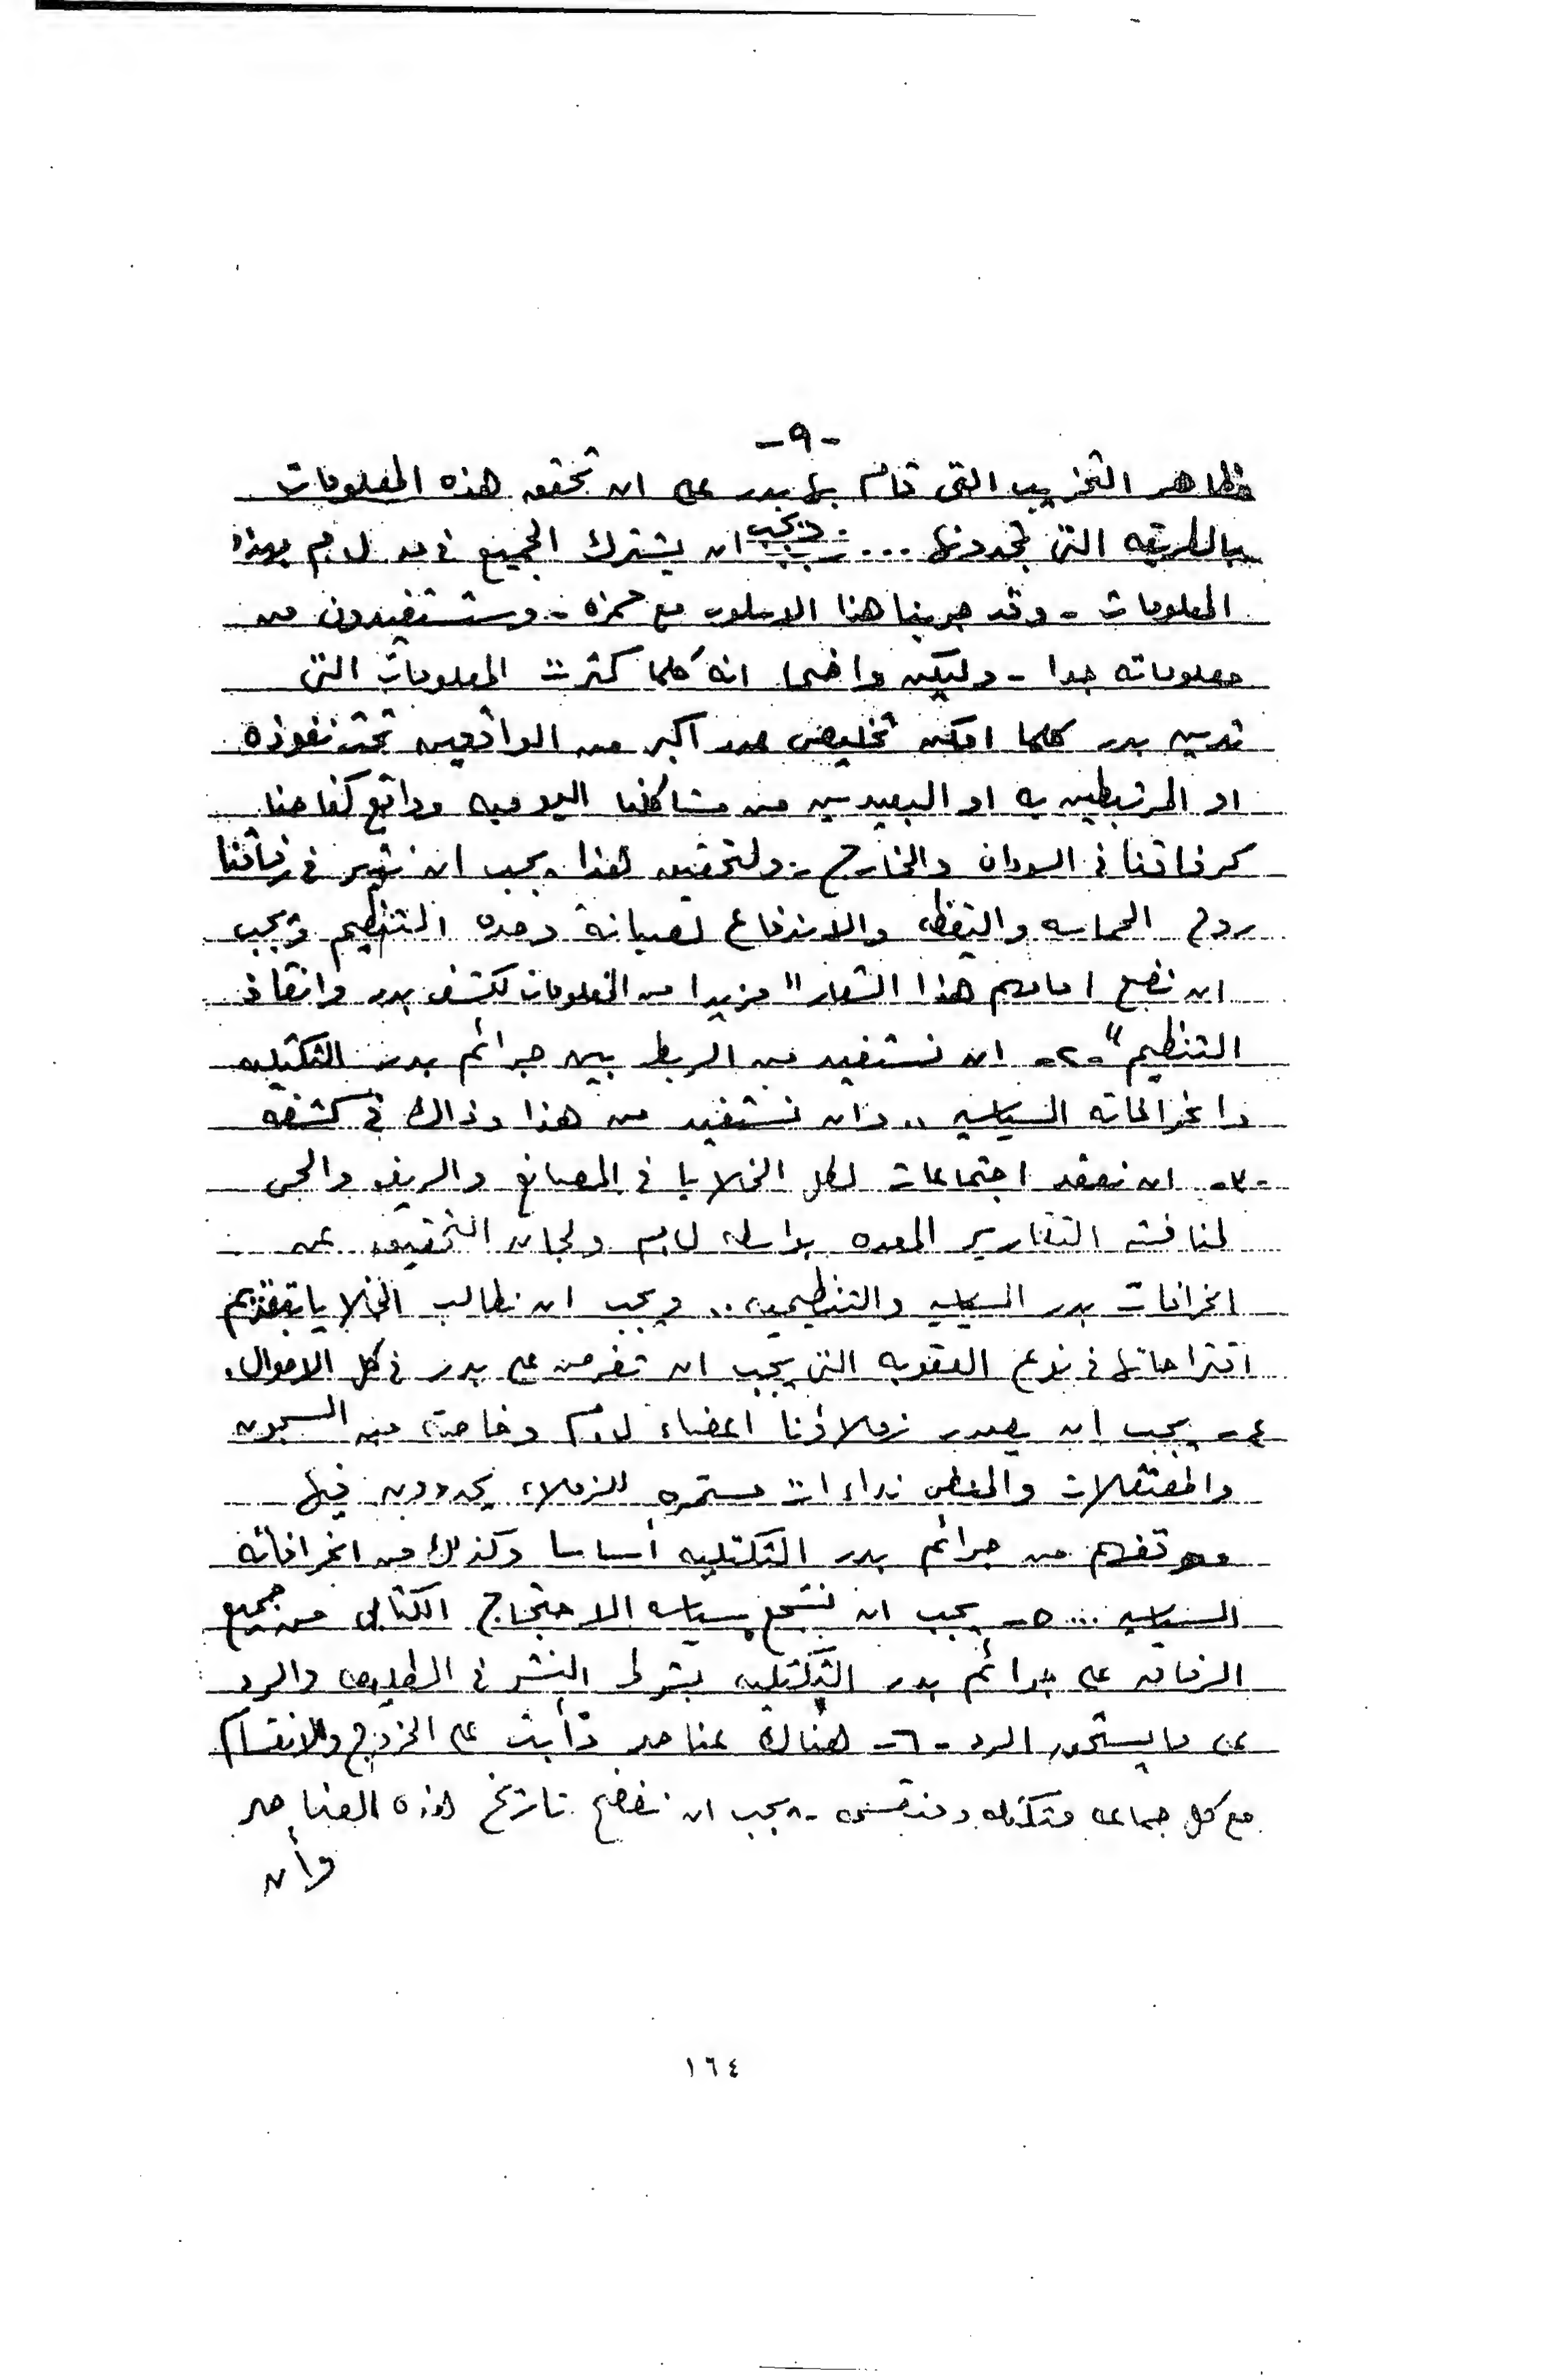 -٩-
مظاهر التخريب التى قام بها بدر على ان تحقق هذه المعلومات
بالطريقه التى تحددونها ... ويجب ان يشترك الجميع فى مد ل.م بهذه
المعلومات - وقد جربنا هذا الاسلوب مع حمزه - وستستفيدون من
معلوماته جدا - وليكن واضحا انه كلما كثرت المعلومات التى
تدين بدر كلما امكن تخليص عدد اكبر من الواقعين تحت نفوذه
او المرتبطين به او البعيدين عن مشاكلنا اليوميه وواقع كفاحنا
كرفاقنا فى السودان والخارج - ولتحقيق هذا يجب ان نثير فى رفاقنا
روح الحماسه واليقظه والاندفاع لصيانة وحدة التنظيم ويجب
ان نضع امامهم هذا الشعار " مزيدا من المعلومات لكشف بدر وانقاذ
التنظيم " -٢- ان نستفيد من الربط بين جرائم بدر التكتليه
وانحرافاته السياسيه .. وان نستفيد من هذا وذاك فى كشفه
-٣- ان نعقد اجتماعات لكل الخلايا فى المصانع والريف والحى
لمناقشة التقارير المعده بواسطه ل.م ولجان التحقيق عن
انحرافات بدر السياسيه والتنظيميه .. ويجب ان نطالب الخلايا بتقديم
اقتراحاتها فى نوع العقوبه التى يجب ان تفرض على بدر فى كل الاحوال.
-٤- يجب ان يصدر زملاؤنا اعضاء ل.م وخاصة من السجون
والمعتقلات نداءات مستمره للزملاء يحددون فيها
موقفهم من جرائم بدر التكتليه أساسا وكذلك من انحرافاته
السياسيه ... -٥- يجب ان نشجع سياسه الاحتجاج الكتابى من جميع
الرفاق على جرائم بدر التكتليه بشرط النشر فى والرد
على ما يستحق الرد -٦- هناك عناصر دأبت على الخروج والانقسام
مع كل جماعه متكتله ومنقسمه - يجب ان نفضح تاريخ هذه العناصر
وأن
١٦٤